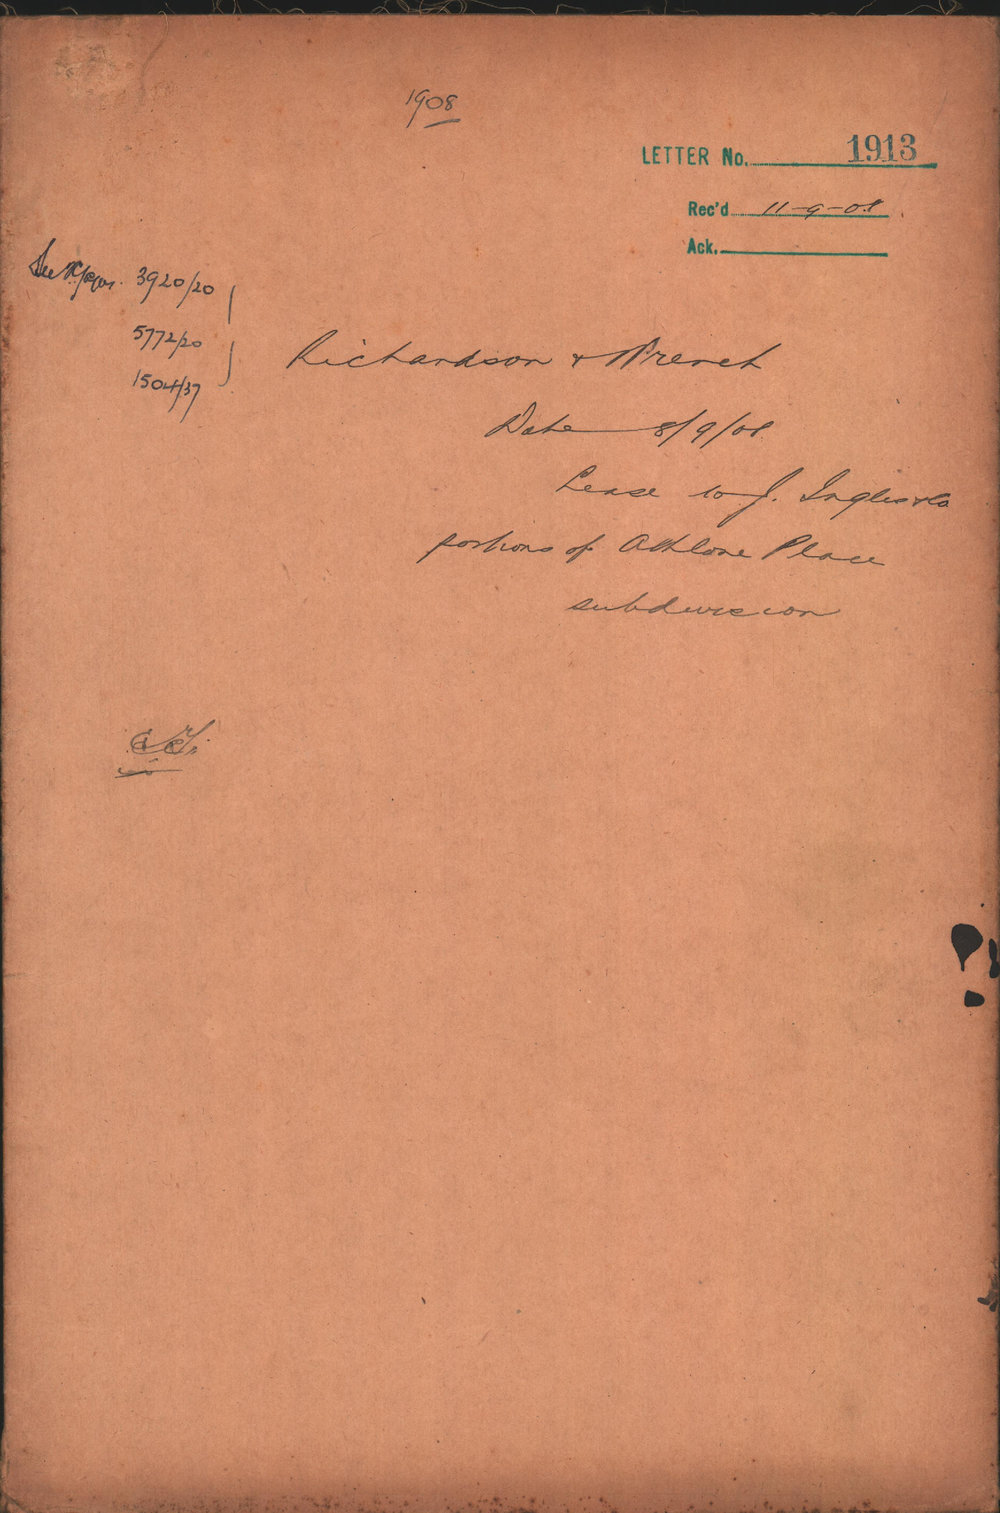 1908
LETTER No. 1913
Rec'd 11-9-08
Ack.
See 3920/20
5772/20
1504/37
Richardson + Wrench
Date 8/9/08
Lease to J. Inglis & Co
portions of Athlone Place
subdivision